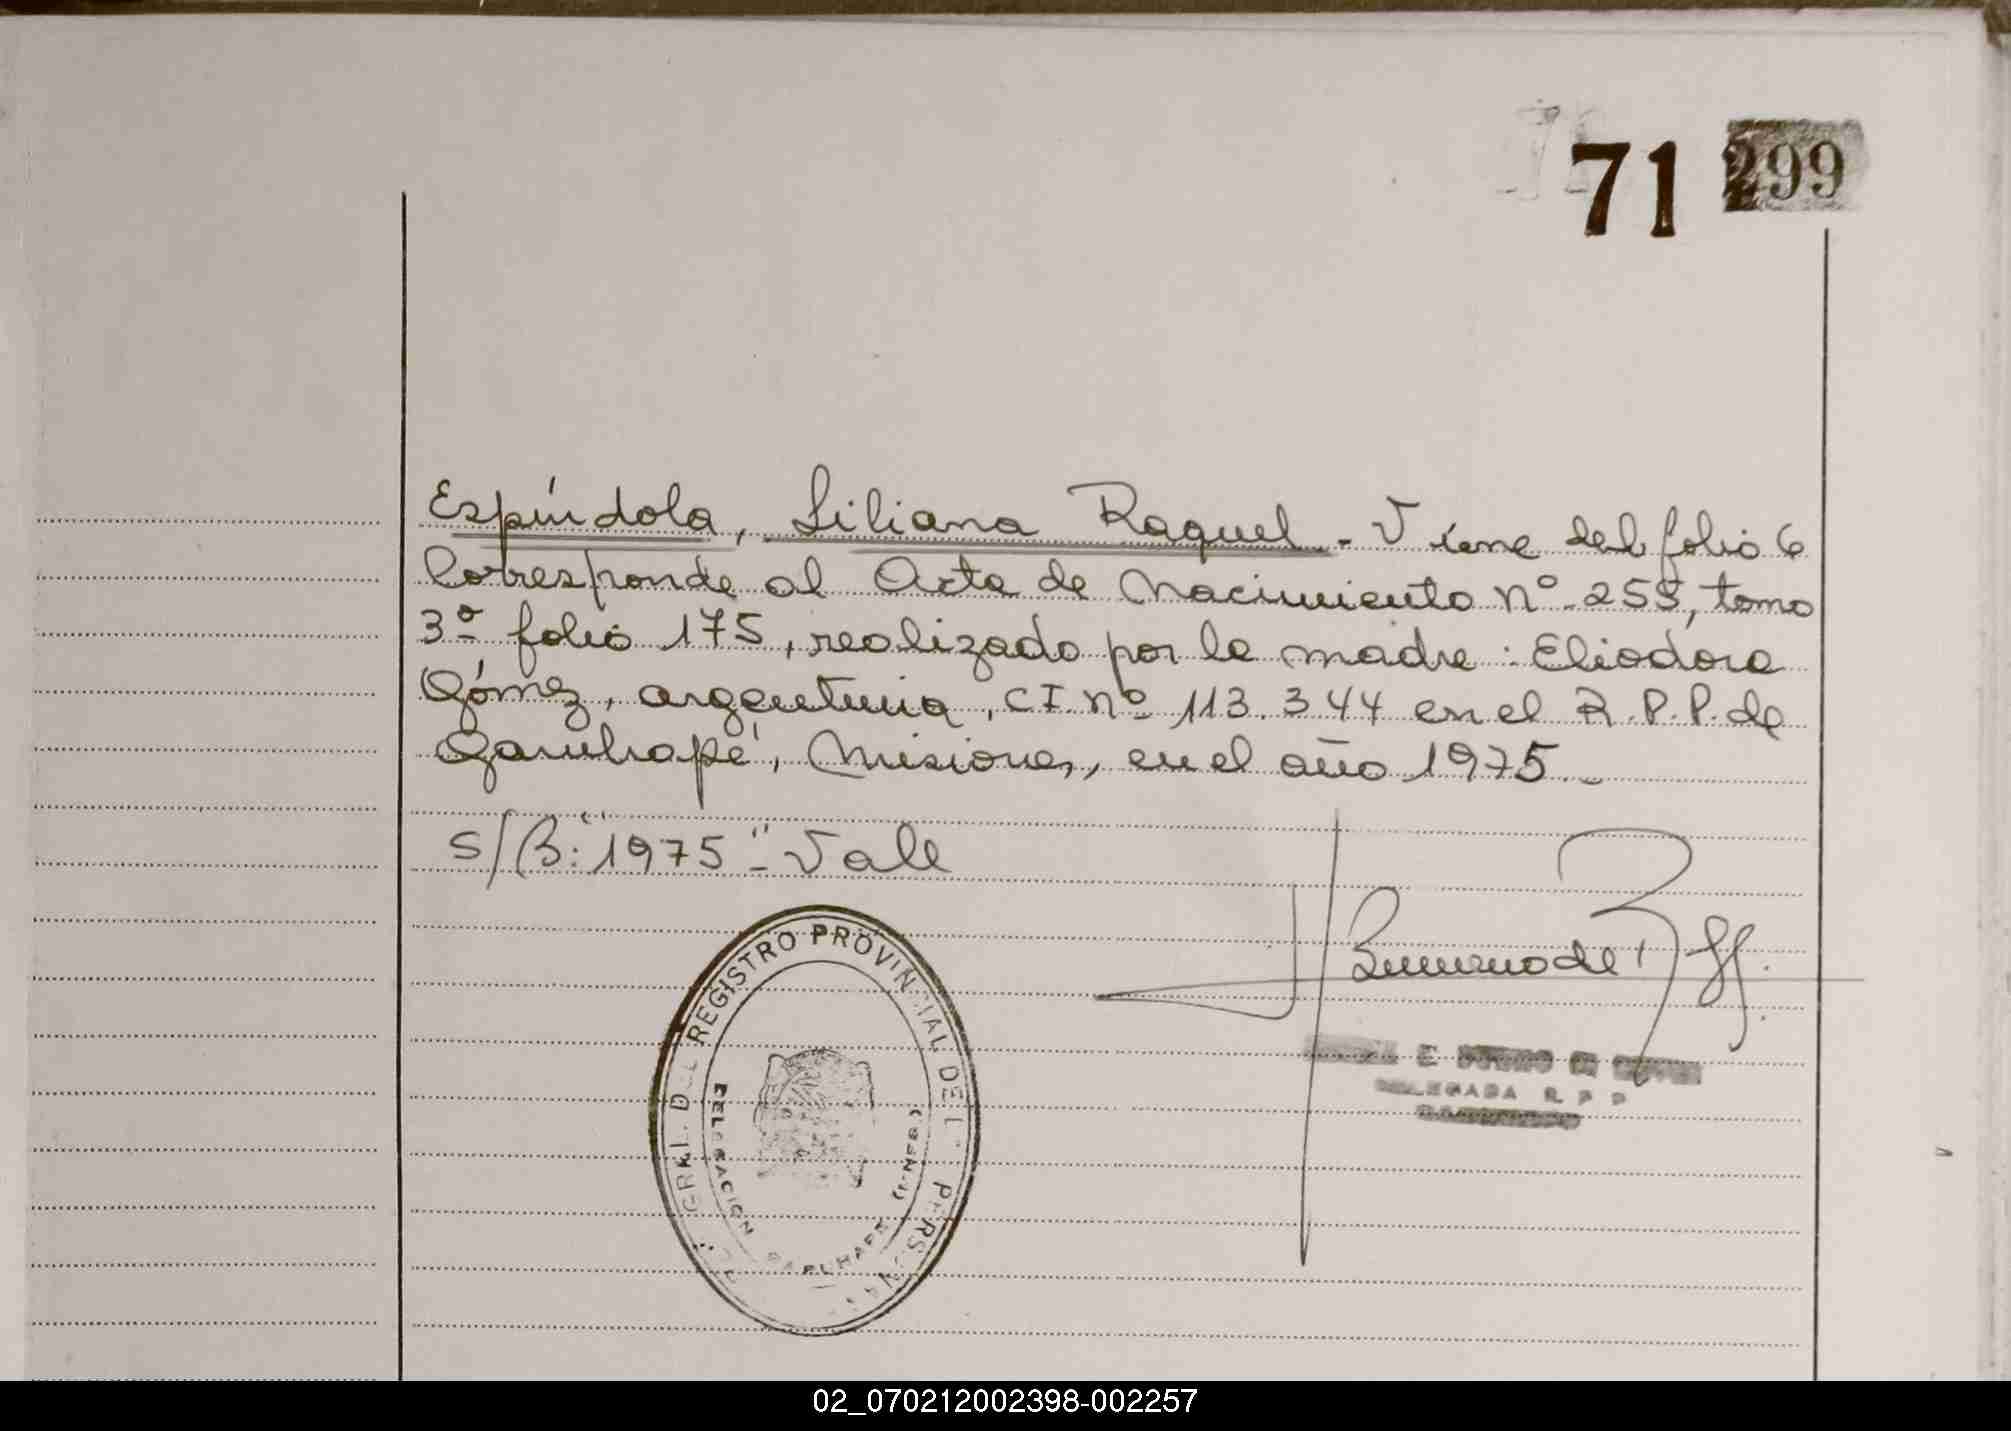 71 299
Espíndola, Liliana Raquel - Viene del folio 6
Corresponde al Acta de Nacimiento Nº 255, tomo
3º folio 175, realizado por la madre: Eliodora
Gómez, argentina, CI. nº 113.344 en el R.P.P. de
Garuhapé, Misiones, en el año 1975.-
S/B: "1975" - Vale
REGISTRO PROVINCIAL DE L
DELEGACION GARUHAPE
DELEGADA R P P
02_070212002398-002257